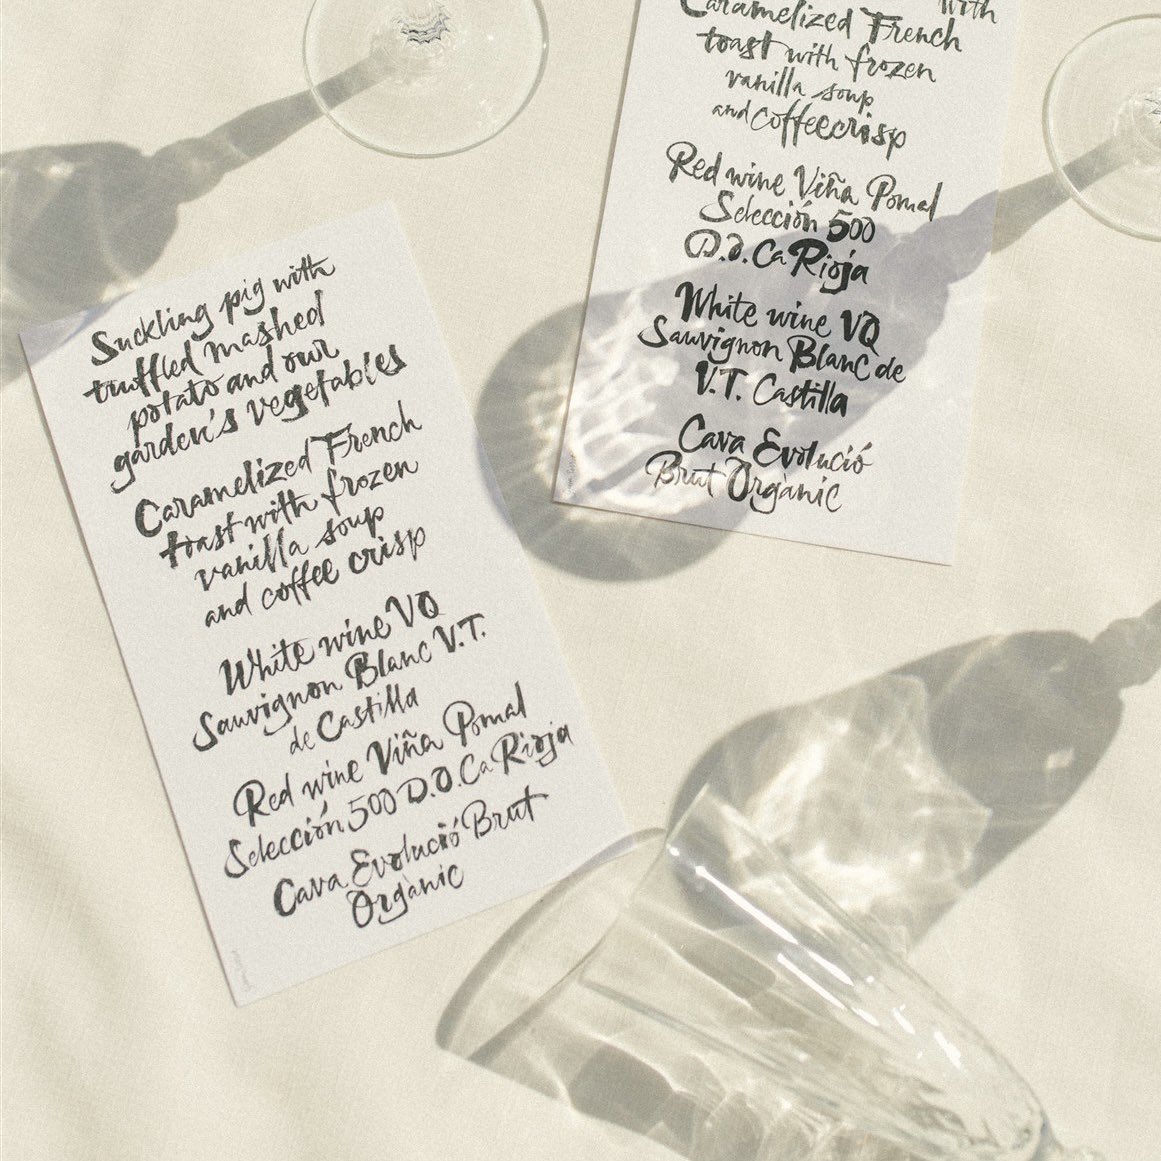 Suckling pig with
truffled mashed
potato and our
garden's vegetables
Caramelized French
toast with frozen
vanilla soup
and coffee crisp
White wine VQ
Sauvignon Blanc V.T.
de Castilla
Red wine Viña Pomal
Selección 500 D.O.Ca Rioja
Cava Evolució Brut
Orgànic
with
Caramelized French
toast with frozen
vanilla soup
and coffeecrisp
Red wine Viña Pomal
Selección 500
D.O.Ca Rioja
White wine VQ
Sauvignon Blanc de
V.T. Castilla
Cava Evolució
Brut Orgànic